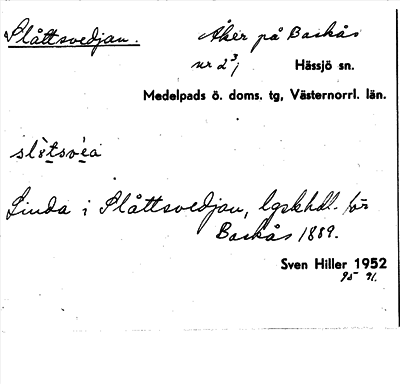 Slåttsvedjan. Åker på Backås
nr 2³/
Hässjö sn.
Medelpads ö. doms. tg, Västernorrl. län.
Linda i Slåttsvedjan, lgskhdl. för
Backås 1889.
Sven Hiller 1952